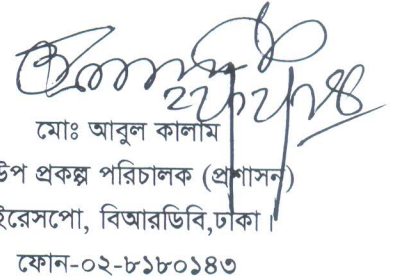 মোঃ আবুল কালাম
উপ প্রকল্প পরিচালক (প্রশাসন)
ইরেসপো, বিআরডিবি,ঢাকা।
ফোন-০২-৮১৮০১৪৩